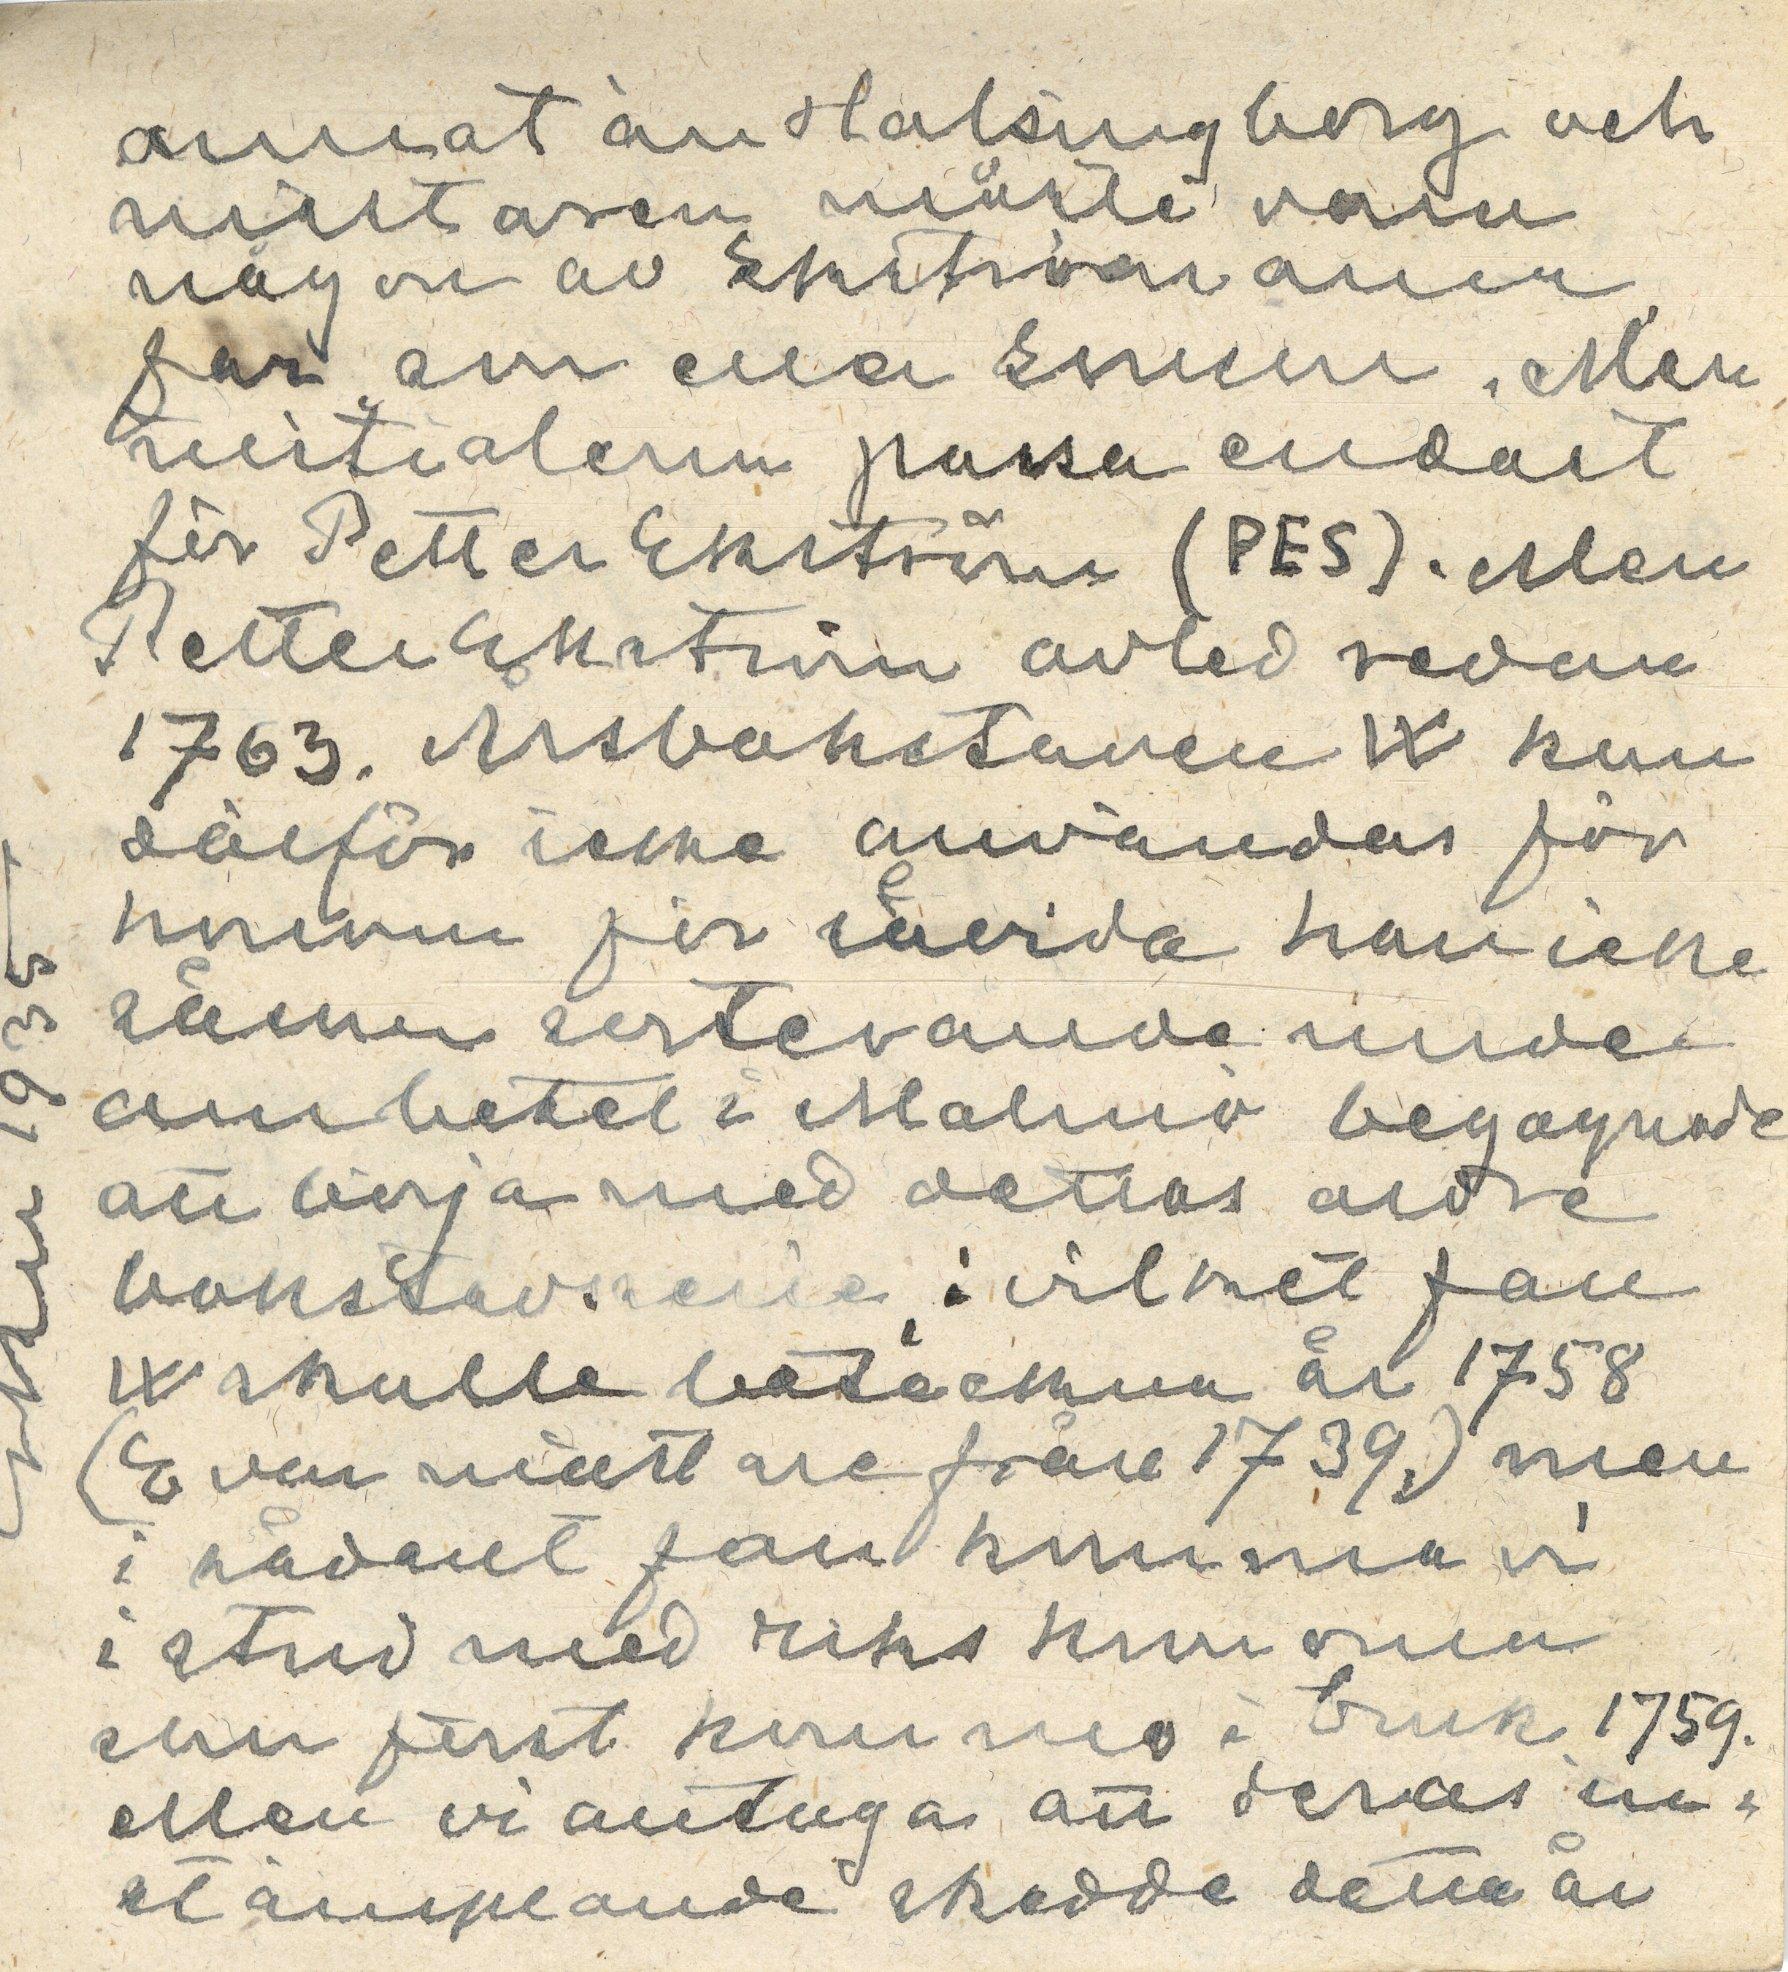 annat än Halsingborg och
mästaren måste vara
någon av Ekströmarna,
far som ena sonen. Men
initialerna passa endast
för Petter Ekström (PES). Men
Petter Ekström avled redan
1763. Årsbokstaven W kan
därför icke användas för
honom för såvida han icke
såsom sorterande under
ambetet i Malmö begagnade
att börja med dettas andra
bokstavsserie, i vilket fall
W skulle beteckna år 1758
(E var mästare från 1739,) men
i sådant fall komma vi
i strid med rikskronorna
som först kommo i bruk 1759.
Men vi antaga att deras in-
stämplande skedde detta år
1935